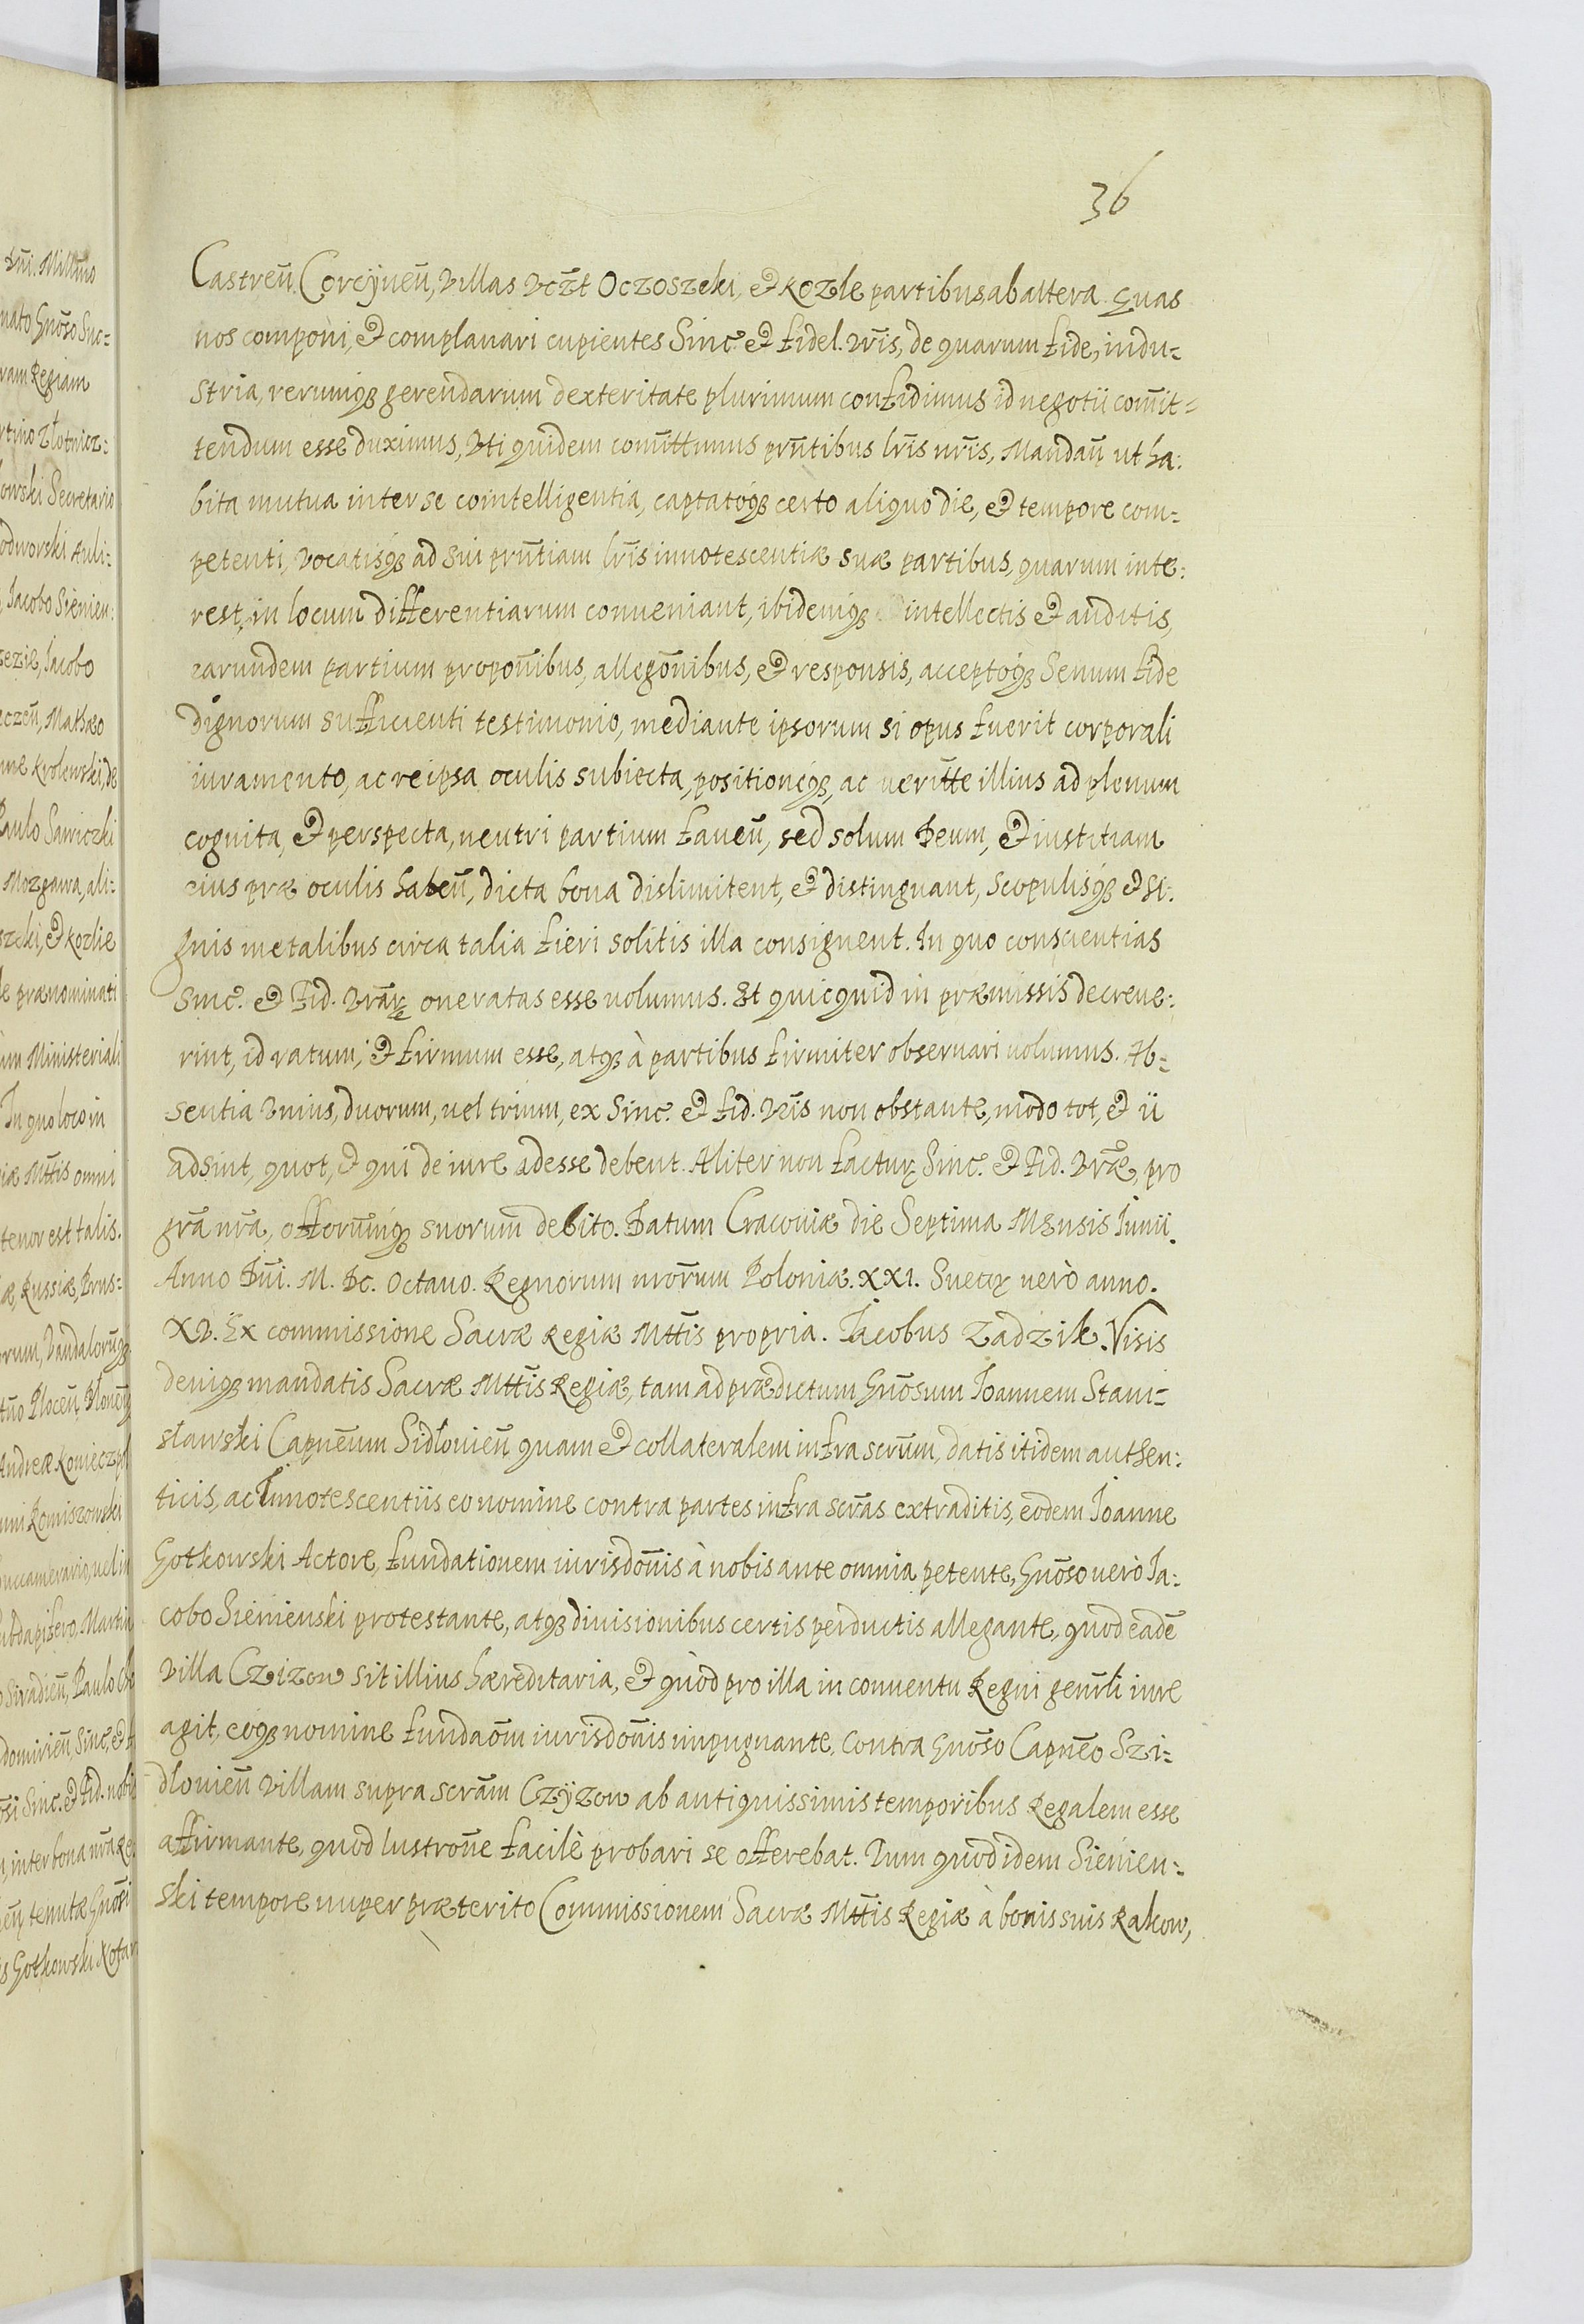 36
Castreñ. Corcÿneñ, Villas Vcz̃t Oczoszeki, et Kozle partibus ab altera. Quas
nos componi, et complanari cupientes Sinc. et fidel. Vr̃is, de quarum fide, indu=
stria, rerumq3 gerendarum dexteritate plurimum confidimus id negotii com̃it=
tendum esse duximus, Vti quidem com̃ittimus pr̃ntibus lr̃is nr̃is, Mandañ ut ha:
bita mutua inter se cointelligentia, captatóq3 certo aliquo die, et tempore com=
petenti, vocatisq3 ad sui pr̃ntiam lr̃is innotescentiæ suæ partibus, quarum inte:
rest, in locum differentiarum conveniant, ibidemq3 intellectis et auditis,
earundem partium propoñibus, allegõnibus, et responsis, acceptóq3 Senum fide
dignorum sufficienti testimonio, mediante ipsorum si opus fuerit corporali
iuramento, ac reipsa oculis subiecta, positionéq3, ac veritt̃e illius ad plenum
cognita, et perspecta, neutri partium faveñ, sed solum Deum, et iustitiam
eius præ oculis habeñ, dicta bona dislimitent, et distinguant, scopulisq3 et si:
gnis metalibus circa talia fieri solitis illa consignent. In quo conscientias
Sinc. et Fid. Vrãr̃ oneratas esse volumus. Et quicquid in præmissis decreve:
rint, id ratum, et firmum esse, atq3 à partibus firmiter observari volumus. Ab=
sentia Vnius, duorum, vel trium, ex Sinc. et fid. Vr̃is non obstante, modo tot, et ii
adsint, quot, et qui de iure adesse debent. Aliter non facturę Sinc. et Fid. Vrãe, pro
grã nrã, offorum̃q3 suorum debito. Datum Cracoviæ die Septima Mensis Junii.
Anno Dñi. M. Dc. Octavo. Regnorum nrõrum Poloniæ. XXI. Suecię verò anno.
XV. Ex commissione Sacræ Regiæ Mtt̃is propria. Jacobus Zadzik. Visis
deniq3 mandatis Sacræ Mtt̃is Regiæ, tam ad prædictum Gnõsum Joannem Stani=
sławski Capnẽum Sidłovieñ quam et collateralem infra scrũm, datis itidem authen:
ticis, ac Innotescentiis eo nomine contra partes infra scrãs extraditis, eodem Joanne
Gotkowski Actore, fundationem iurisdoñis à nobis ante omnia petente, Gnõso verò Ja:
cobo Sienienski protestante, atq3 divisionibus certis perductis allegante, quod eadẽ
Villa Czizow sit illius hæreditaria, et quòd pro illa in conventu Regni genr̃li iure
agit, eoq3 nomine fundaõm iurisdoñis impugnante, contra Gnõso Capnẽo Szi=
dłovieñ Villam supra scrãm Czÿzow ab antiquissimis temporibus Regalem esse
affirmante, quod lustroñe facilè probari se offerebat. Tum quòd idem Sienien=
ski tempore nuper præterito Commissionem Sacræ Mtt̃is Regiæ à bonis suis Rakow,